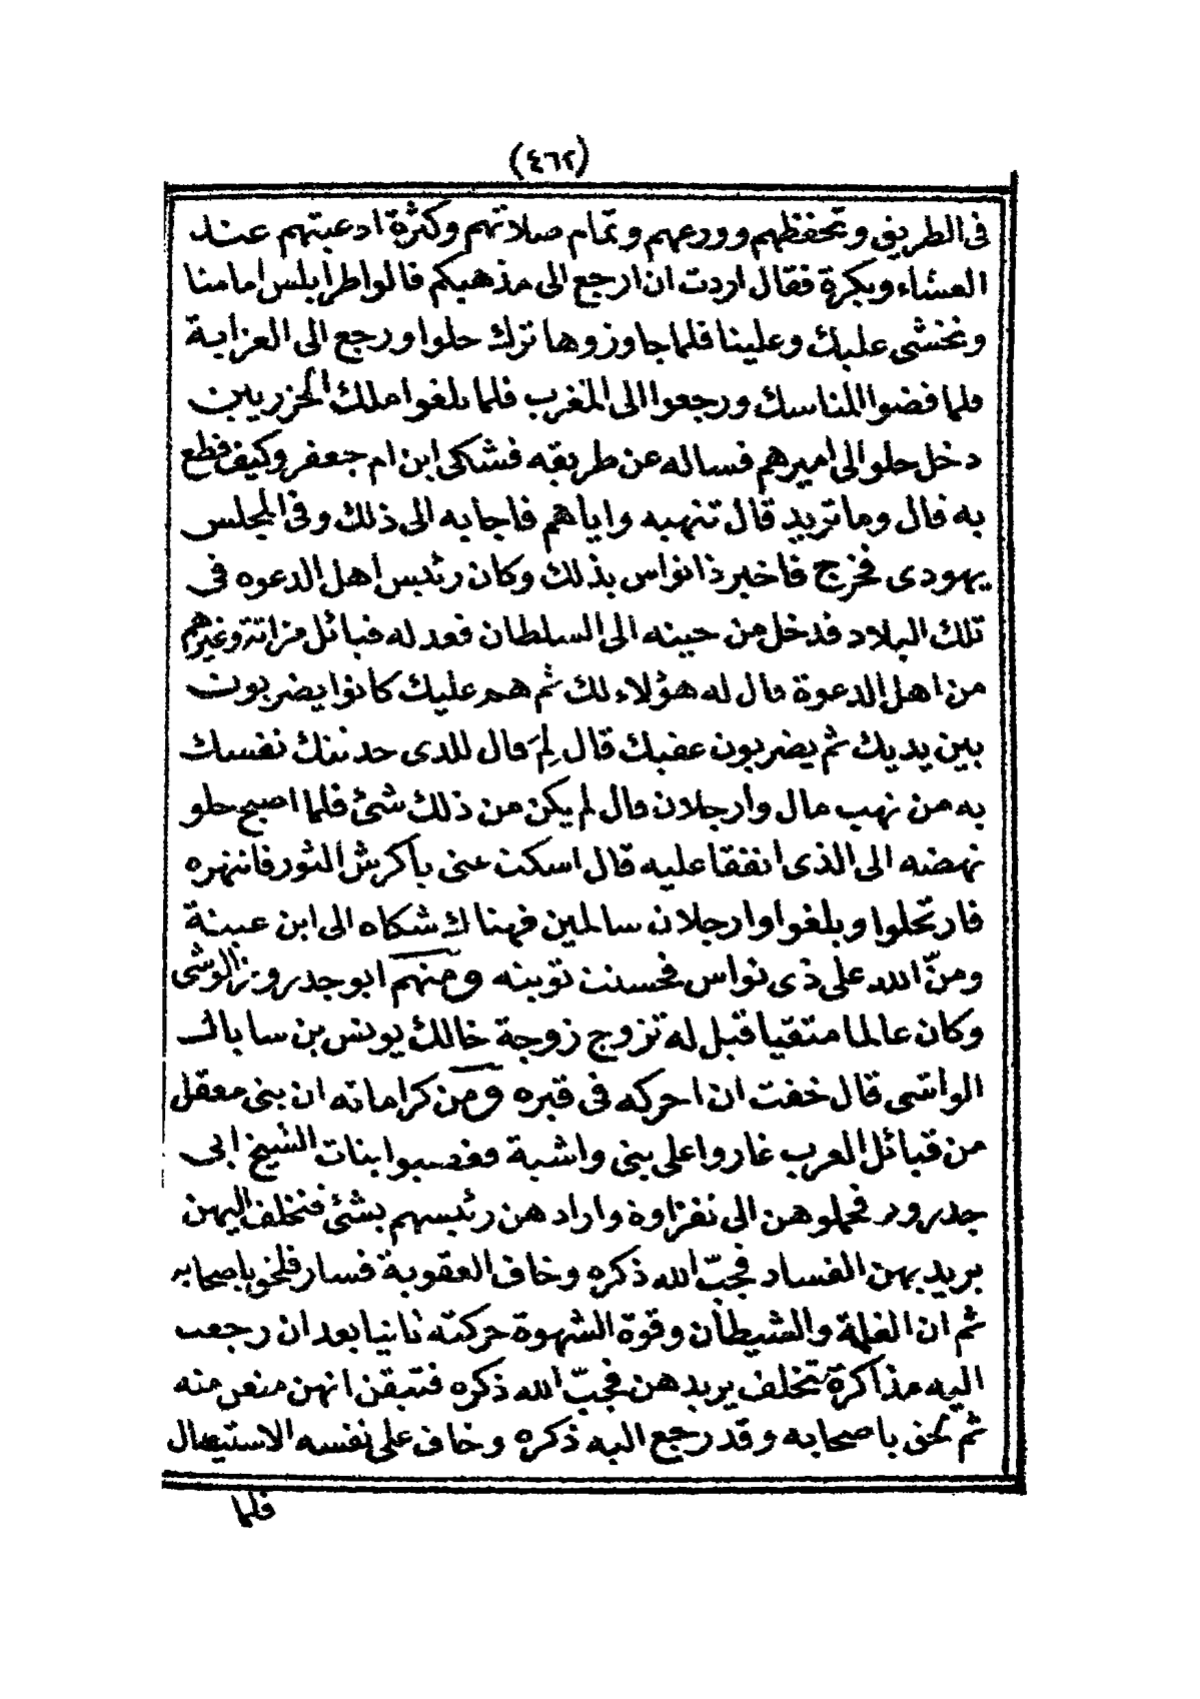 (٤٦٢)
فى الطريق وتحفظهم وورعهم وتمام صلاتهم وكثرة ادعيتهم عند
العشاء وبكرة فقال اردت ان ارجع الى مذهبكم قالوا طرابلس امامنا
ونخشى عليك وعلينا فلما جاوزوها ترك حلوا ورجع الى العزابة
فلما قضوا المناسك ورجعوا الى المغرب فلما بلغوا ملك الخزريين
دخل حلو الى اميرهم فساله عن طريقه فشكى ابن ام جعفر وكيف قطع
به قال وما تريد قال تنهبه واياهم فاجابه الى ذلك وفى المجلس
يهودى فخرج فاخبر ذا نواس بذلك وكان رئيس اهل الدعوه فى
تلك البلاد فدخل من حينه الى السلطان فعد له قبائل مزاتة وغيرهم
من اهل الدعوة قال له هؤلاء لك ثم هم عليك كانوا يضربون
بين يديك ثم يضربون عقبك قال لِمَ قال للذى حدثتك نفسك
به من نهب مال وارجلان قال لم يكن من ذلك شئ فلما اصبح حلو
نهضه الى الذى اتفقا عليه قال اسكت عنى ياكرش الثور فانتهره
فارتحلوا وبلغوا وارجلان سالمين فهناك شكاه الى ابن عيينة
ومنّ الله على ذى نواس فحسنت توبته ومنهم ابو جدرو يز الوشى
وكان عالما متقيا قيل له تزوج زوجة خالك يونس بن سابالـ
الواشى قال خفت ان احركه فى قبره ومن كراماته ان بنى معقل
من قبائل العرب غاروا على بنى واشية فغصبوا بنات الشيخ ابى
جدرور فحملوهن الى نفزاوة واراد هن رئيسهم بشئ فتخلف اليهن
يريد بهن الفساد فجبّ الله ذكره وخاف العقوبة فسار فلحق باصحابه
ثم ان الغلمة والشيطان وقوة الشهوة حركته ثانيا بعد ان رجعت
اليه مذاكرة فتخلف يريد هن فجبّ الله ذكره فتيقن انهن منعن منه
ثم لحق باصحابه وقد رجع اليه ذكره وخاف على نفسه الاستيصال
فلما